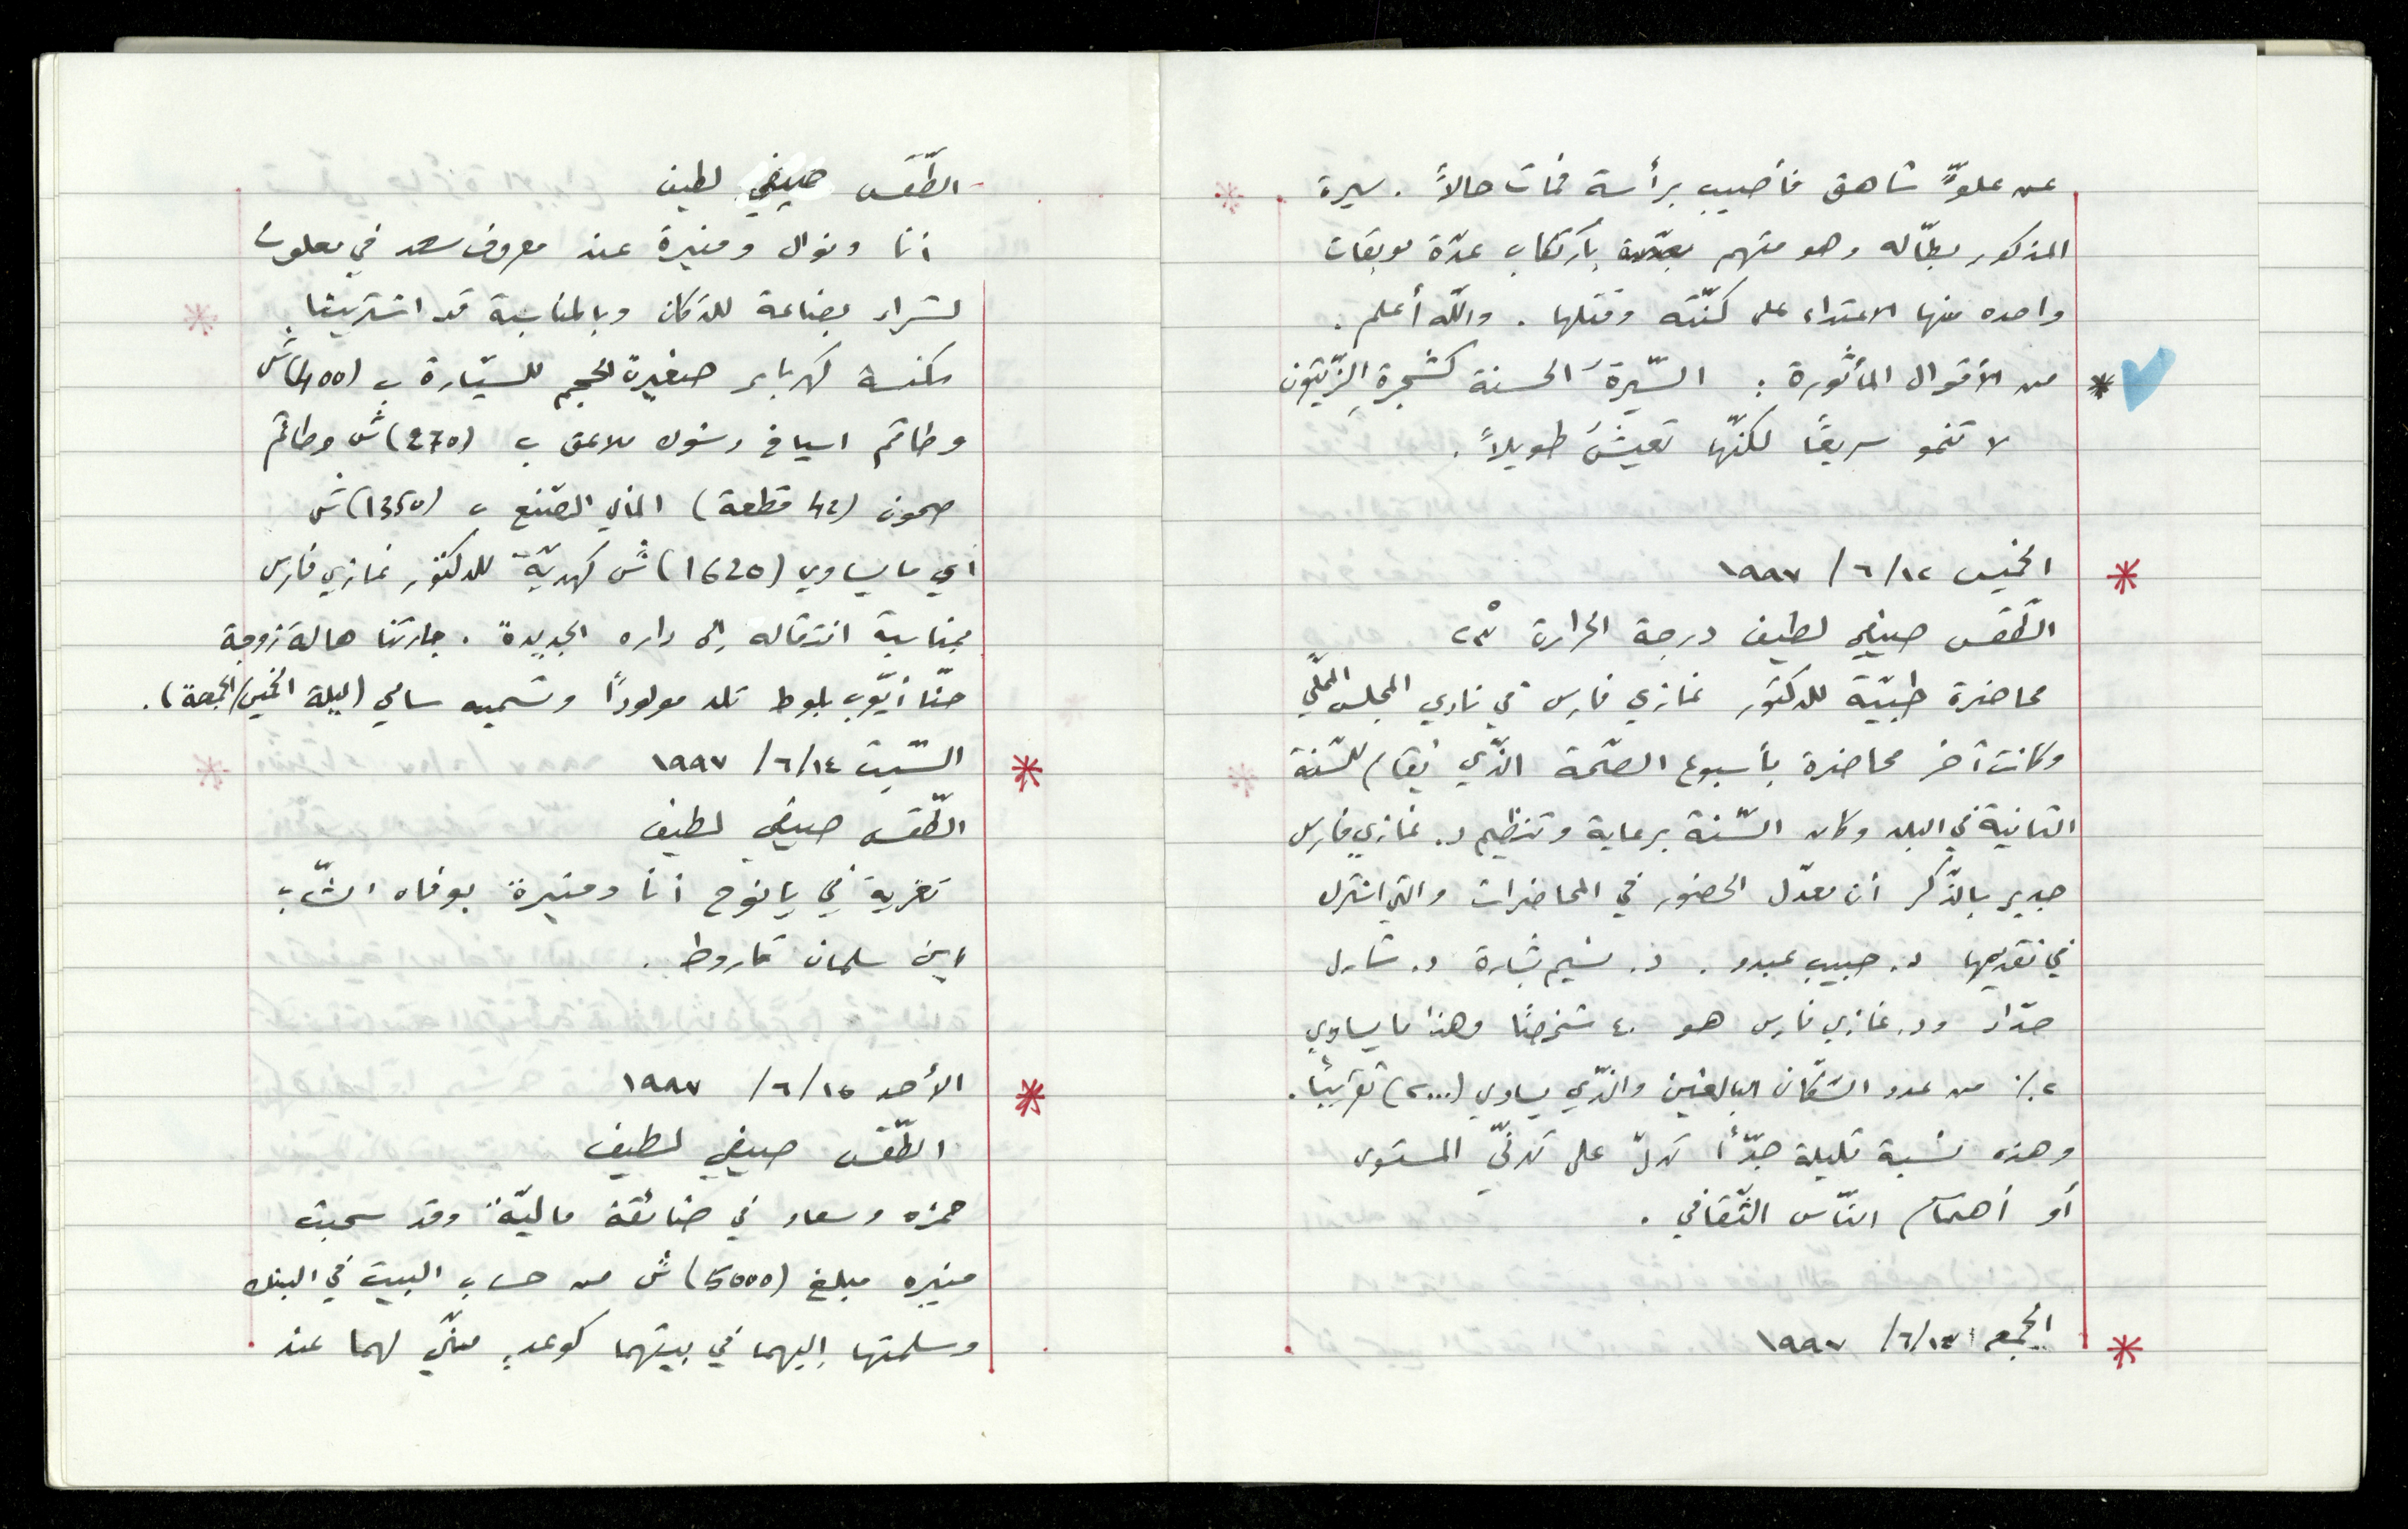 عن علوٍّ شاهق فأصيب برأسه فمات حالاً. سيرة
المذكور بطّاله وهو متهم بارتكاب عدّة موبقات
واحده منها الاعتداء على كنّته وقتلها. واللّه أعلم.
* من الأقوال المأثورة: السّيرةُ الحسنة كشجرةِ الزّيتون
لا تنمو سريعًا لكنّها تعيشُ طويلاً.
* الخميس ١٢/٦/١٩٩٧
الطّقس صيفي لطيف درجة الحرارة ٢٣°
محاضرة طبيّة للدكتور غازي فارس في نادي المجلس الملّي
وكانت آخر محاضرة بأسبوع الصّحّة الذّي يُقام للسّنة
الثانية في البلد وكان السّنة برعاية وتنظيم د. غازي فارس
جدير بالذّكر أن معدّل الحضور في المحاضرات والتي اشترك
في تقديمها د. حبيب عبدو. د. نسيم بشارة د. شارل
حدّاد ود. غازي فارس هو ٤٠ شخصًا وهذا ما يساوي
٢٪ من عدد السّكّان البالغين والذّي يساوي (٢٠٠٠) تقريبًا.
وهذه نسبة قليلة جدّاً تدلّ على تدنّي المستوى
أو اهتمام النّاس الثّقافي.
* الجمعه ١٣/٦/١٩٩٧
الطّقس صيفي لطيف
أنا ونوال ومنيرة عند معروف سعد في معلوت
لشراء بضاعة للدكان وبالمناسبة قد اشترينا
مكنسة كهرباء صغيرة الحجم للسيّارة ب (400)ش
وطاقم اسياخ وشوك ملاعق ب (270)ش وطاقم
صحون (42 قطعة) الماني الصّنع ب (1350)ش
أي ما يساوي (1620)ش كهديّة للدكتور غازي فارس
بمناسبة انتقاله إلى داره الجديدة. جارتنا هالة زوجة
حنّا أيّوب بلوط تلد مولودًا وتسميه سامي (ليلة الخميس/الجمعة).
* السّبت ١٤/٦/١٩٩٧
الطّقس صيفي لطيف
تعزية في يانوح أنا ومنيرة بوفاه الشّاب
ابن سلمان فاروط.
* الأحد ١٥/٦/١٩٩٧
الطّقس صيفي لطيف
حمزه وسعاد في ضائقة ماليّة وقد سحبت
منيره مبلغ (5000)ش من حساب البيت في البنك
وسلمتها إليهما في بيتهما كوعدٍ منّي لهما عند